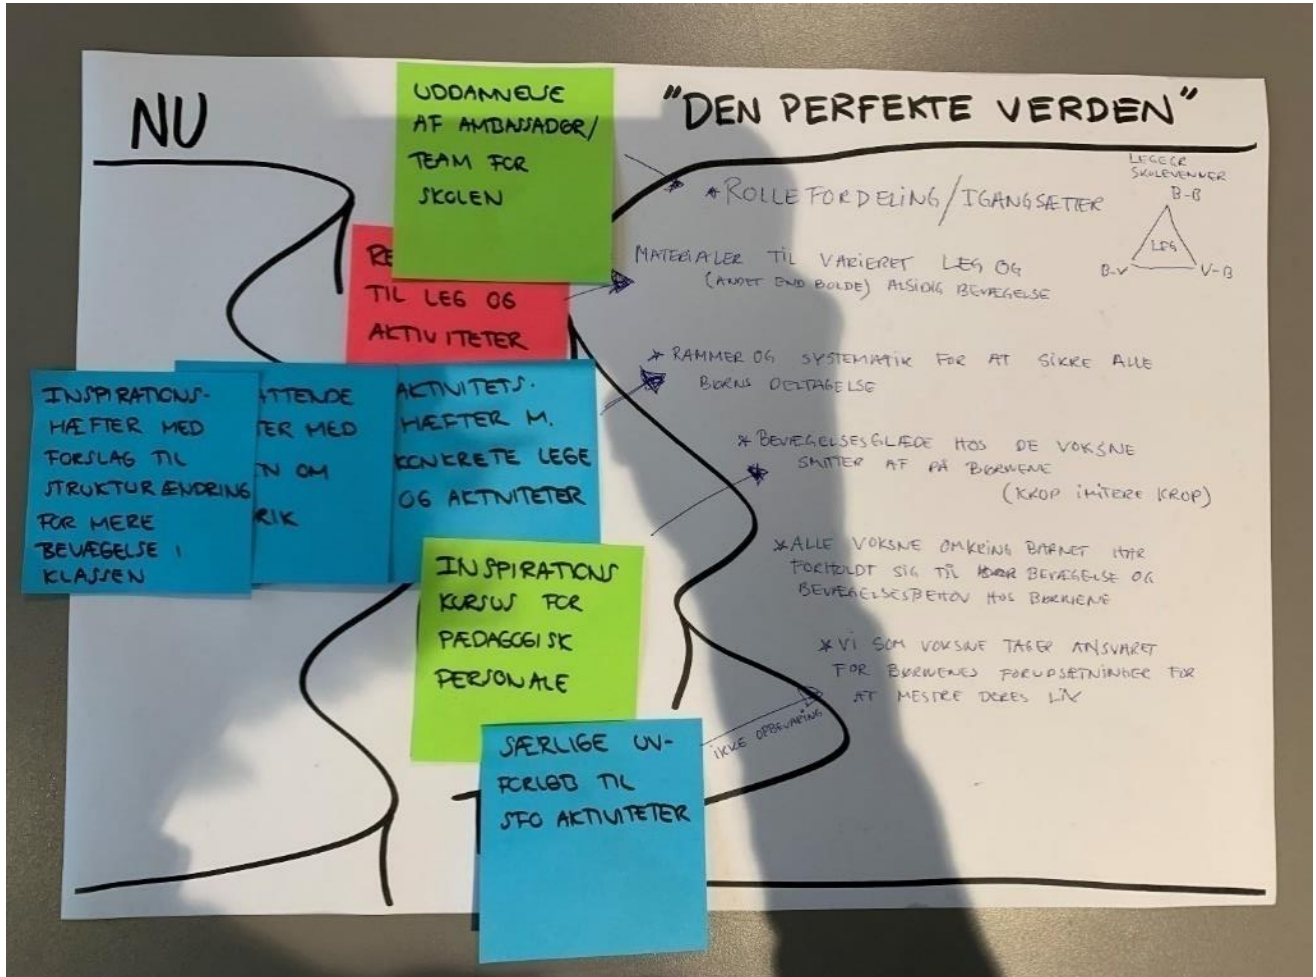 NU
"DEN PERFEKTE VERDEN"
UDDANNELSE
AF AMBASSADØR/
TEAM FOR
SKOLEN
RE
TIL LEG OG
AKTIVITETER
INSPIRATIONS-
HÆFTER MED
FORSLAG TIL
STRUKTURÆNDRING
FOR MERE
BEVÆGELSE I
KLASSEN
ATTENDE
TER MED
EN OM
RIK
AKTIVITETS-
HÆFTER M.
KONKRETE LEGE
OG AKTIVITETER
INSPIRATIONS
KURSUS FOR
PÆDAGOGISK
PERSONALE
SÆRLIGE UV-
FORLØB TIL
SFO AKTIVITETER
* ROLLEFORDELING/IGANGSÆTTER
LEGEGR
SKOLEVENNER
B-B
LEG
B-V
V-B
MATERIALER TIL VARIERET LEG OG
(ANDET END BOLDE) ALSIDIG BEVÆGELSE
* RAMMER OG SYSTEMATIK FOR AT SIKRE ALLE
BØRNS DELTAGELSE
* BEVÆGELSESGLÆDE HOS DE VOKSNE
SMITTER AF PÅ BØRNENE
(KROP IMITERE KROP)
* ALLE VOKSNE OMKRING BARNET HAR
FORHOLDT SIG TIL BEVÆGELSE OG
BEVÆGELSESBEHOV HOS BØRNENE
* VI SOM VOKSNE TAGER ANSVARET
FOR BØRNENES FORUDSÆTNINGER FOR
AT MESTRE DERES LIV
IKKE OPBEVARING